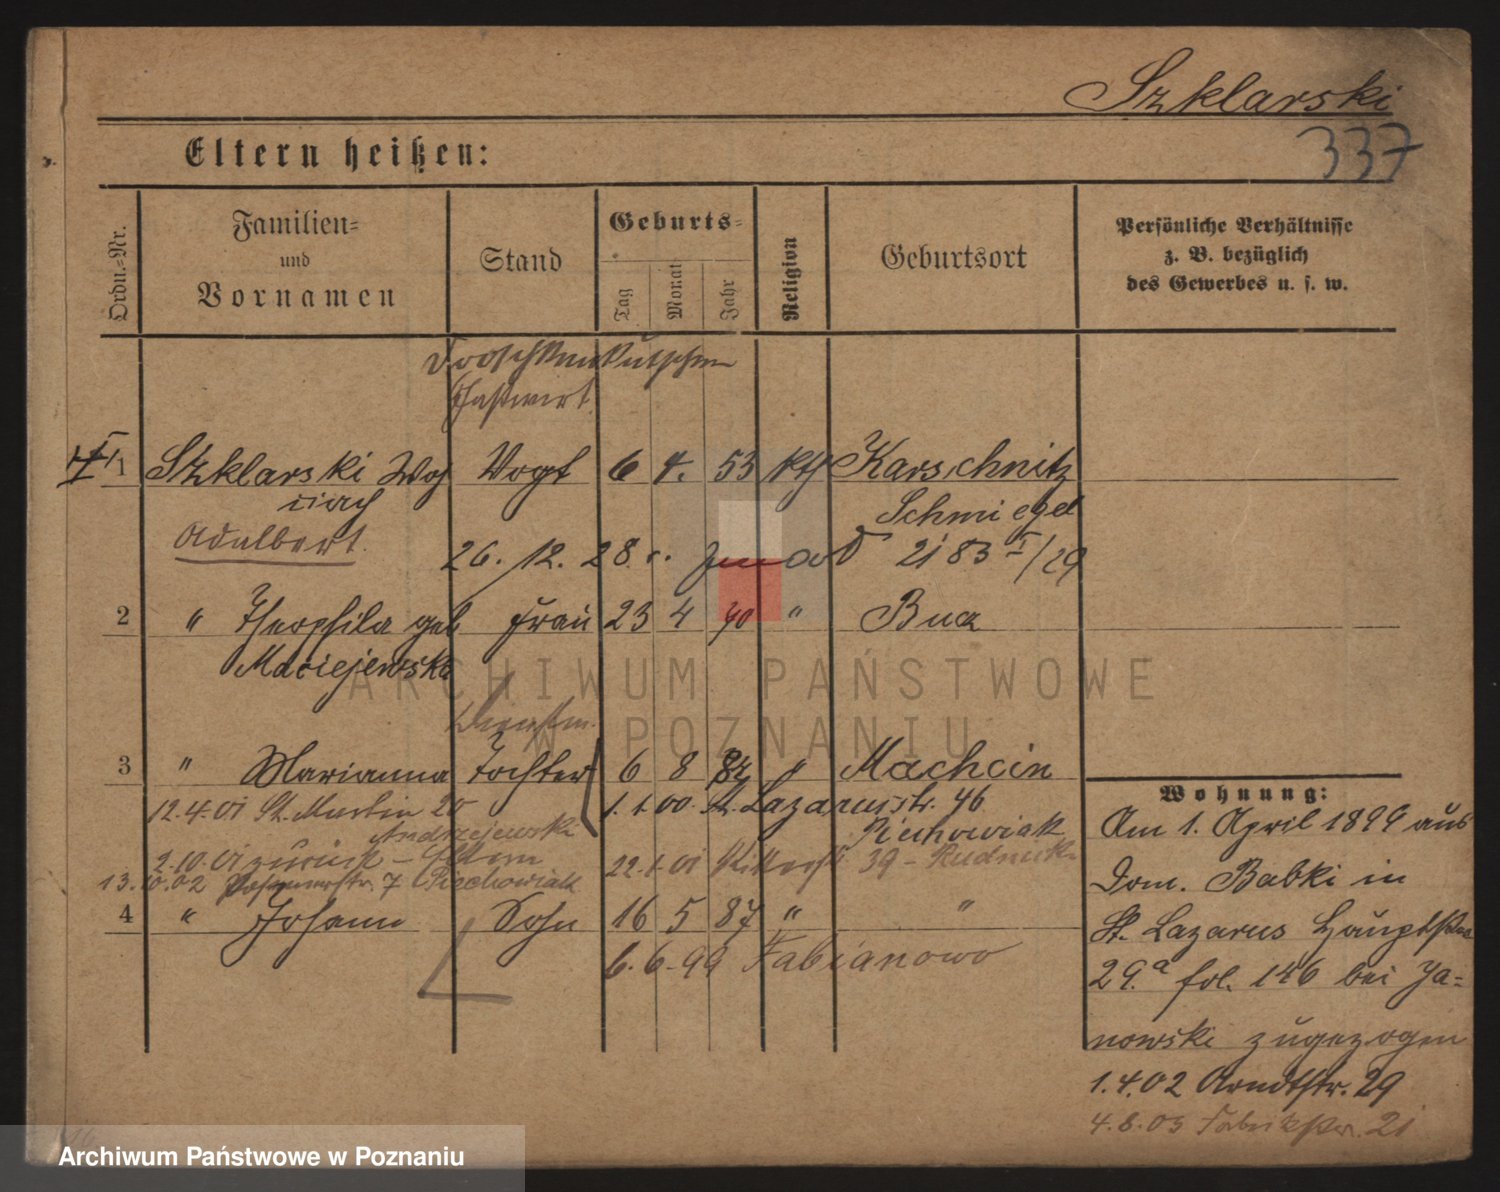 Szklarski
337
Eltern heißen:
Ordn.-Nr.
Familien-
und
Vornamen
Stand
Geburts-
Tag
Monat
Jahr
Religion
Geburtsort
Persönliche Verhältnisse
z. B. bezüglich
des Gewerbes u. s. w.
Droschkenkutscher
Gastwirt
1 Szklarski Woj Vogt 6 4. 53 kth Karschnitz
ciech
Schmiegel
Adalbert.
26. 12. 28 2183 I/29
2 " Theophila geb Frau 23 4 " Buck
Maciejewska
Dienstm.
3 " Marianna Tochter 6 8 82 " Machcin
12.4.01 St. Martin 20 1.1.00. St. Lazarusstr. 46
Andrzejewski Piechowiak
2.10.01 zurück - Eltern 22.1.01 39 -
13.10.02 Posenerstr. 7 Piechowiak
4 " Johann Sohn 16 5 87 " "
6.6.99 Fabianowo
Wohnung:
Am 1. April 1899 aus
Dom. Babki in
St. Lazarus Hauptstr
29.a fol. 146 bei Ja-
nowski zugezogen
1.4.02 Arndtstr. 29
4.8.03 Fabrikstr. 21
ARCHIWUM PAŃSTWOWE
W POZNANIU
Archiwum Państwowe w Poznaniu